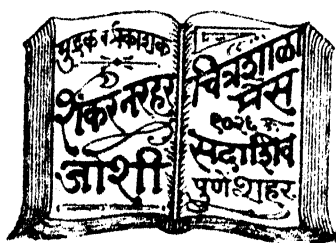 मुद्रक व प्रकाशक
शंकर नरहर
जोशी
चित्रशाळा
प्रेस
१०२६
सदाशिव
पुणें शहर.